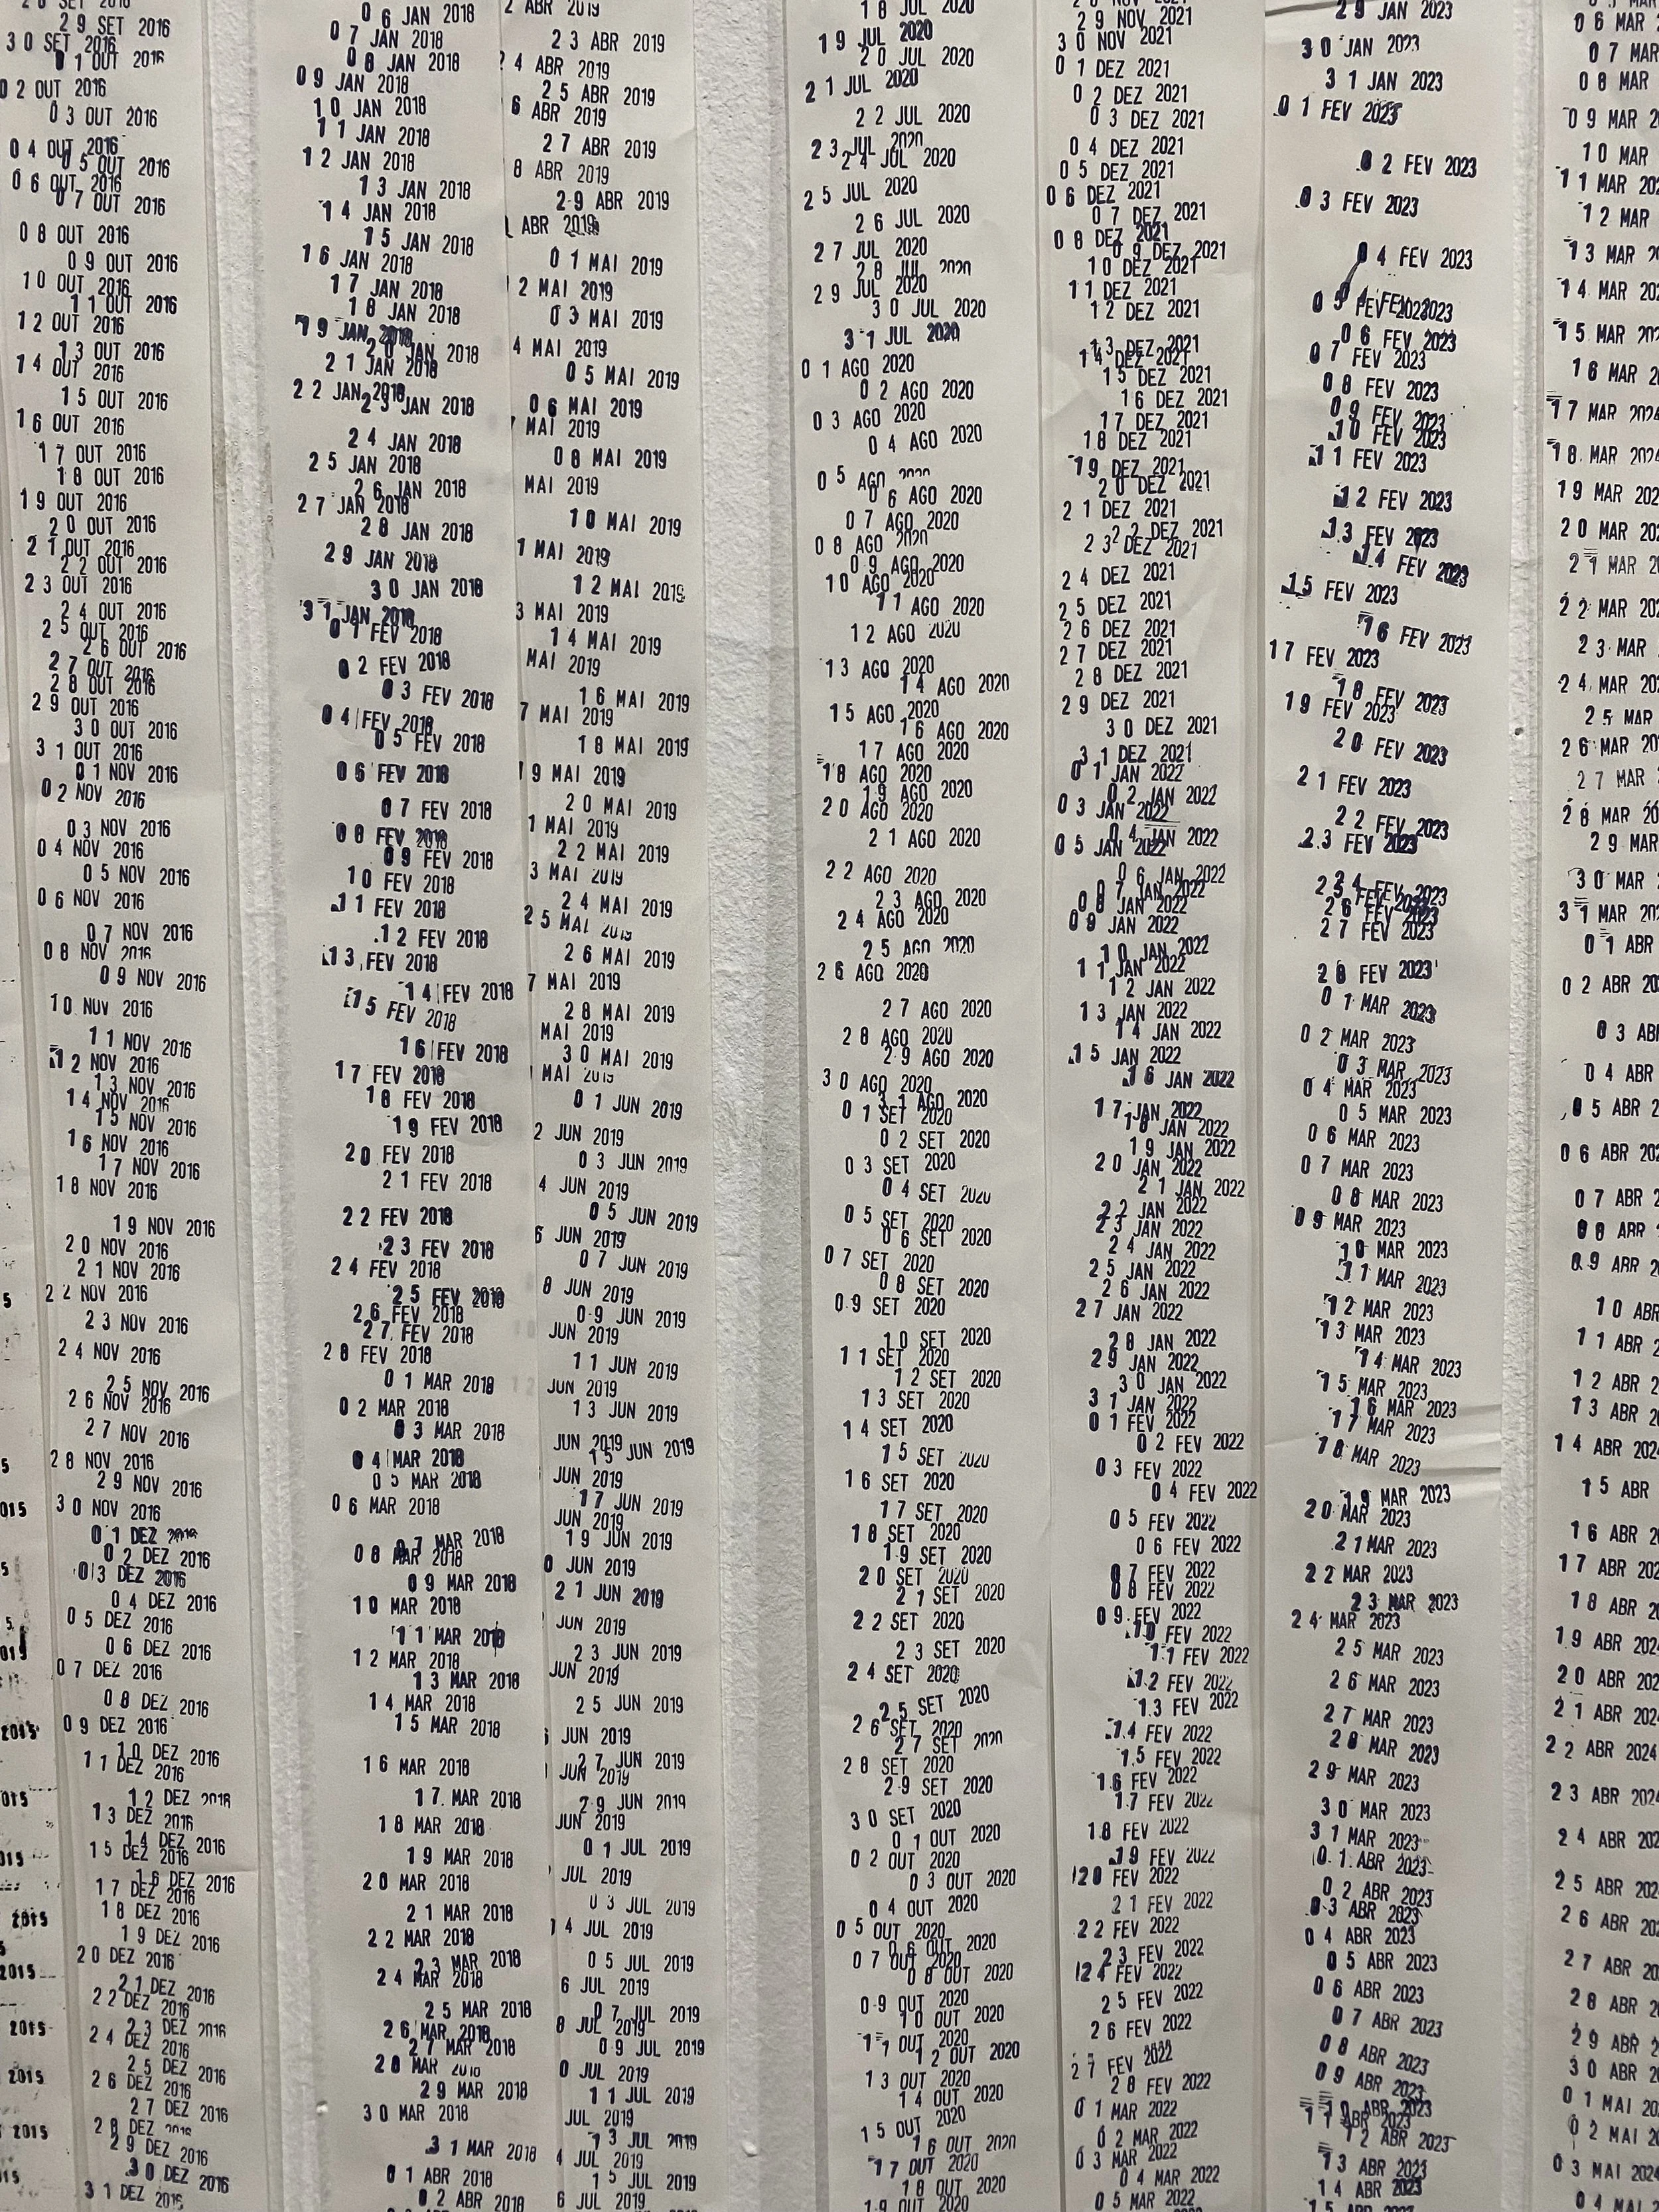 2015
2015
2015
2015
2015
2015
2015
29 SET 2016
30 SET 2016
01 OUT 2016
02 OUT 2016
03 OUT 2016
04 OUT 2016
05 OUT 2016
06 OUT 2016
07 OUT 2016
08 OUT 2016
09 OUT 2016
10 OUT 2016
11 OUT 2016
12 OUT 2016
13 OUT 2016
14 OUT 2016
15 OUT 2016
16 OUT 2016
17 OUT 2016
18 OUT 2016
19 OUT 2016
20 OUT 2016
21 OUT 2016
22 OUT 2016
23 OUT 2016
24 OUT 2016
25 OUT 2016
26 OUT 2016
27 OUT 2016
28 OUT 2016
29 OUT 2016
30 OUT 2016
31 OUT 2016
01 NOV 2016
02 NOV 2016
03 NOV 2016
04 NOV 2016
05 NOV 2016
06 NOV 2016
07 NOV 2016
08 NOV 2016
09 NOV 2016
10 NOV 2016
11 NOV 2016
12 NOV 2016
13 NOV 2016
14 NOV 2016
15 NOV 2016
16 NOV 2016
17 NOV 2016
18 NOV 2016
19 NOV 2016
20 NOV 2016
21 NOV 2016
22 NOV 2016
23 NOV 2016
24 NOV 2016
25 NOV 2016
26 NOV 2016
27 NOV 2016
28 NOV 2016
29 NOV 2016
30 NOV 2016
01 DEZ 2016
02 DEZ 2016
03 DEZ 2016
04 DEZ 2016
05 DEZ 2016
06 DEZ 2016
07 DEZ 2016
08 DEZ 2016
09 DEZ 2016
10 DEZ 2016
11 DEZ 2016
12 DEZ 2016
13 DEZ 2016
14 DEZ 2016
15 DEZ 2016
16 DEZ 2016
17 DEZ 2016
18 DEZ 2016
19 DEZ 2016
20 DEZ 2016
21 DEZ 2016
22 DEZ 2016
23 DEZ 2016
24 DEZ 2016
25 DEZ 2016
26 DEZ 2016
27 DEZ 2016
28 DEZ 2016
29 DEZ 2016
30 DEZ 2016
31 DEZ 2016
06 JAN 2018
07 JAN 2018
08 JAN 2018
09 JAN 2018
10 JAN 2018
11 JAN 2018
12 JAN 2018
13 JAN 2018
14 JAN 2018
15 JAN 2018
16 JAN 2018
17 JAN 2018
18 JAN 2018
19 JAN 2018
20 JAN 2018
21 JAN 2018
22 JAN 2018
23 JAN 2018
24 JAN 2018
25 JAN 2018
26 JAN 2018
27 JAN 2018
28 JAN 2018
29 JAN 2018
30 JAN 2018
31 JAN 2018
01 FEV 2018
02 FEV 2018
03 FEV 2018
04 FEV 2018
05 FEV 2018
06 FEV 2018
07 FEV 2018
08 FEV 2018
09 FEV 2018
10 FEV 2018
11 FEV 2018
12 FEV 2018
13 FEV 2018
14 FEV 2018
15 FEV 2018
16 FEV 2018
17 FEV 2018
18 FEV 2018
19 FEV 2018
20 FEV 2018
21 FEV 2018
22 FEV 2018
23 FEV 2018
24 FEV 2018
25 FEV 2018
26 FEV 2018
27 FEV 2018
28 FEV 2018
01 MAR 2018
02 MAR 2018
03 MAR 2018
04 MAR 2018
05 MAR 2018
06 MAR 2018
07 MAR 2018
08 MAR 2018
09 MAR 2018
10 MAR 2018
11 MAR 2018
12 MAR 2018
13 MAR 2018
14 MAR 2018
15 MAR 2018
16 MAR 2018
17 MAR 2018
18 MAR 2018
19 MAR 2018
20 MAR 2018
21 MAR 2018
22 MAR 2018
23 MAR 2018
24 MAR 2018
25 MAR 2018
26 MAR 2018
27 MAR 2018
28 MAR 2018
29 MAR 2018
30 MAR 2018
31 MAR 2018
01 ABR 2018
02 ABR 2018
2 ABR 2019
23 ABR 2019
24 ABR 2019
25 ABR 2019
6 ABR 2019
27 ABR 2019
8 ABR 2019
29 ABR 2019
ABR 2019
01 MAI 2019
2 MAI 2019
03 MAI 2019
4 MAI 2019
05 MAI 2019
06 MAI 2019
7 MAI 2019
08 MAI 2019
MAI 2019
10 MAI 2019
1 MAI 2019
12 MAI 2019
3 MAI 2019
14 MAI 2019
MAI 2019
16 MAI 2019
7 MAI 2019
18 MAI 2019
19 MAI 2019
20 MAI 2019
1 MAI 2019
22 MAI 2019
3 MAI 2019
24 MAI 2019
25 MAI 2019
26 MAI 2019
7 MAI 2019
28 MAI 2019
MAI 2019
30 MAI 2019
MAI 2019
01 JUN 2019
2 JUN 2019
03 JUN 2019
4 JUN 2019
05 JUN 2019
6 JUN 2019
07 JUN 2019
8 JUN 2019
09 JUN 2019
JUN 2019
11 JUN 2019
JUN 2019
13 JUN 2019
JUN 2019
15 JUN 2019
JUN 2019
17 JUN 2019
JUN 2019
19 JUN 2019
0 JUN 2019
21 JUN 2019
JUN 2019
23 JUN 2019
JUN 2019
25 JUN 2019
JUN 2019
27 JUN 2019
JUN 2019
29 JUN 2019
JUN 2019
01 JUL 2019
JUL 2019
03 JUL 2019
4 JUL 2019
05 JUL 2019
6 JUL 2019
07 JUL 2019
8 JUL 2019
09 JUL 2019
0 JUL 2019
11 JUL 2019
JUL 2019
13 JUL 2019
4 JUL 2019
15 JUL 2019
6 JUL 2019
18 JUL 2020
19 JUL 2020
20 JUL 2020
21 JUL 2020
22 JUL 2020
23 JUL 2020
24 JUL 2020
25 JUL 2020
26 JUL 2020
27 JUL 2020
28 JUL 2020
29 JUL 2020
30 JUL 2020
31 JUL 2020
01 AGO 2020
02 AGO 2020
03 AGO 2020
04 AGO 2020
05 AGO 2020
06 AGO 2020
07 AGO 2020
08 AGO 2020
09 AGO 2020
10 AGO 2020
11 AGO 2020
12 AGO 2020
13 AGO 2020
14 AGO 2020
15 AGO 2020
16 AGO 2020
17 AGO 2020
18 AGO 2020
19 AGO 2020
20 AGO 2020
21 AGO 2020
22 AGO 2020
23 AGO 2020
24 AGO 2020
25 AGO 2020
26 AGO 2020
27 AGO 2020
28 AGO 2020
29 AGO 2020
30 AGO 2020
31 AGO 2020
01 SET 2020
02 SET 2020
03 SET 2020
04 SET 2020
05 SET 2020
06 SET 2020
07 SET 2020
08 SET 2020
09 SET 2020
10 SET 2020
11 SET 2020
12 SET 2020
13 SET 2020
14 SET 2020
15 SET 2020
16 SET 2020
17 SET 2020
18 SET 2020
19 SET 2020
20 SET 2020
21 SET 2020
22 SET 2020
23 SET 2020
24 SET 2020
25 SET 2020
26 SET 2020
27 SET 2020
28 SET 2020
29 SET 2020
30 SET 2020
01 OUT 2020
02 OUT 2020
03 OUT 2020
04 OUT 2020
05 OUT 2020
06 OUT 2020
07 OUT 2020
08 OUT 2020
09 OUT 2020
10 OUT 2020
11 OUT 2020
12 OUT 2020
13 OUT 2020
14 OUT 2020
15 OUT 2020
16 OUT 2020
17 OUT 2020
18 OUT 2020
19 OUT 2020
29 NOV 2021
30 NOV 2021
01 DEZ 2021
02 DEZ 2021
03 DEZ 2021
04 DEZ 2021
05 DEZ 2021
06 DEZ 2021
07 DEZ 2021
08 DEZ 2021
09 DEZ 2021
10 DEZ 2021
11 DEZ 2021
12 DEZ 2021
13 DEZ 2021
14 DEZ 2021
15 DEZ 2021
16 DEZ 2021
17 DEZ 2021
18 DEZ 2021
19 DEZ 2021
20 DEZ 2021
21 DEZ 2021
22 DEZ 2021
23 DEZ 2021
24 DEZ 2021
25 DEZ 2021
26 DEZ 2021
27 DEZ 2021
28 DEZ 2021
29 DEZ 2021
30 DEZ 2021
31 DEZ 2021
01 JAN 2022
02 JAN 2022
03 JAN 2022
04 JAN 2022
05 JAN 2022
06 JAN 2022
07 JAN 2022
08 JAN 2022
09 JAN 2022
10 JAN 2022
11 JAN 2022
12 JAN 2022
13 JAN 2022
14 JAN 2022
15 JAN 2022
16 JAN 2022
17 JAN 2022
18 JAN 2022
19 JAN 2022
20 JAN 2022
21 JAN 2022
22 JAN 2022
23 JAN 2022
24 JAN 2022
25 JAN 2022
26 JAN 2022
27 JAN 2022
28 JAN 2022
29 JAN 2022
30 JAN 2022
31 JAN 2022
01 FEV 2022
02 FEV 2022
03 FEV 2022
04 FEV 2022
05 FEV 2022
06 FEV 2022
07 FEV 2022
08 FEV 2022
09 FEV 2022
10 FEV 2022
11 FEV 2022
12 FEV 2022
13 FEV 2022
14 FEV 2022
15 FEV 2022
16 FEV 2022
17 FEV 2022
18 FEV 2022
19 FEV 2022
20 FEV 2022
21 FEV 2022
22 FEV 2022
23 FEV 2022
24 FEV 2022
25 FEV 2022
26 FEV 2022
27 FEV 2022
28 FEV 2022
01 MAR 2022
02 MAR 2022
03 MAR 2022
04 MAR 2022
05 MAR 2022
29 JAN 2023
30 JAN 2023
31 JAN 2023
01 FEV 2023
02 FEV 2023
03 FEV 2023
04 FEV 2023
05 FEV 2023
06 FEV 2023
07 FEV 2023
08 FEV 2023
09 FEV 2023
10 FEV 2023
11 FEV 2023
12 FEV 2023
13 FEV 2023
14 FEV 2023
15 FEV 2023
16 FEV 2023
17 FEV 2023
18 FEV 2023
19 FEV 2023
20 FEV 2023
21 FEV 2023
22 FEV 2023
23 FEV 2023
24 FEV 2023
25 FEV 2023
26 FEV 2023
27 FEV 2023
28 FEV 2023
01 MAR 2023
02 MAR 2023
03 MAR 2023
04 MAR 2023
05 MAR 2023
06 MAR 2023
07 MAR 2023
08 MAR 2023
09 MAR 2023
10 MAR 2023
11 MAR 2023
12 MAR 2023
13 MAR 2023
14 MAR 2023
15 MAR 2023
16 MAR 2023
17 MAR 2023
18 MAR 2023
19 MAR 2023
20 MAR 2023
21 MAR 2023
22 MAR 2023
23 MAR 2023
24 MAR 2023
25 MAR 2023
26 MAR 2023
27 MAR 2023
28 MAR 2023
29 MAR 2023
30 MAR 2023
31 MAR 2023
01 ABR 2023
02 ABR 2023
03 ABR 2023
04 ABR 2023
05 ABR 2023
06 ABR 2023
07 ABR 2023
08 ABR 2023
09 ABR 2023
10 ABR 2023
11 ABR 2023
12 ABR 2023
13 ABR 2023
14 ABR 2023
06 MAR
07 MAR
08 MAR
09 MAR 2
10 MAR
11 MAR 202
12 MAR
13 MAR 202
14 MAR 202
15 MAR 202
16 MAR
17 MAR 2024
18 MAR 2024
19 MAR 202
20 MAR 202
21 MAR 2
22 MAR 202
23 MAR
24 MAR 202
25 MAR
26 MAR 202
27 MAR
28 MAR 20
29 MAR
30 MAR
31 MAR 202
01 ABR
02 ABR 20
03 AB
04 ABR
05 ABR 2
06 ABR 202
07 ABR 2
08 ABR
09 ABR 2
10 ABR
11 ABR 2
12 ABR 2
13 ABR 2
14 ABR 2024
15 ABR
16 ABR 2
17 ABR 202
18 ABR 2
19 ABR 2024
20 ABR 202
21 ABR 2024
22 ABR 2024
23 ABR 2024
24 ABR 202
25 ABR 202
26 ABR 202
27 ABR 20
28 ABR 2
29 ABR 2
30 ABR 2
01 MAI 20
02 MAI 2
03 MAI 2024
04 MAI